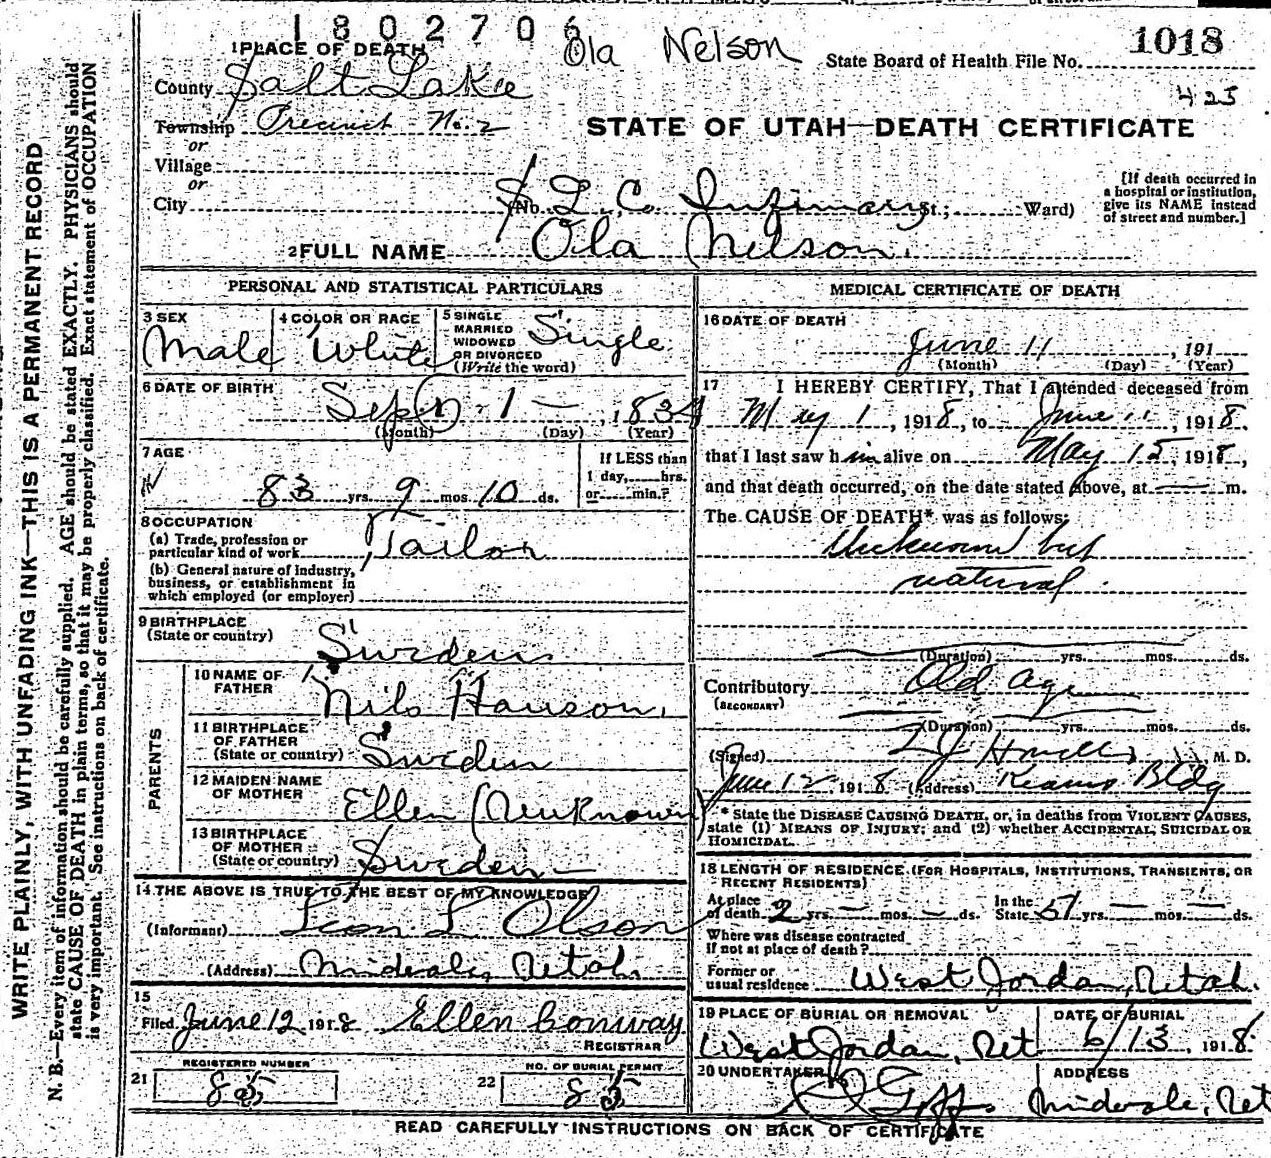 1802706
Ola Nelson
1018
1 PLACE OF DEATH
State Board of Health File No.
County Salt Lake
423
Township Precinct No. 2
or
STATE OF UTAH—DEATH CERTIFICATE
Village
or
City
No. S. L. Co. Infirmary St.; Ward)
[If death occurred in
a hospital or institution,
give its NAME instead
of street and number.]
2 FULL NAME Ola Nelson.
PERSONAL AND STATISTICAL PARTICULARS
3 SEX
Male
4 COLOR OR RACE
White
5 SINGLE
MARRIED
WIDOWED
OR DIVORCED
(Write the word)
Single
6 DATE OF BIRTH
Sept. 1 — , 1834
(Month) (Day) (Year)
7 AGE
83 yrs. 9 mos. 10 ds.
If LESS than
1 day, hrs.
or min.?
8 OCCUPATION
(a) Trade, profession or
particular kind of work Tailor
(b) General nature of industry,
business, or establishment in
which employed (or employer)
9 BIRTHPLACE
(State or country) Sweden
PARENTS
10 NAME OF
FATHER Nils Hanson.
11 BIRTHPLACE
OF FATHER
(State or country) Sweden
12 MAIDEN NAME
OF MOTHER Ellen (Unknown)
13 BIRTHPLACE
OF MOTHER
(State or country) Sweden
14 THE ABOVE IS TRUE TO THE BEST OF MY KNOWLEDGE
(Informant) Leon L Olson
(Address) Midvale, Utah.
15
Filed June 12 1918 Ellen Conway
REGISTRAR
21 REGISTERED NUMBER
85
22 NO. OF BURIAL PERMIT
85
MEDICAL CERTIFICATE OF DEATH
16 DATE OF DEATH
June 11 , 191
(Month) (Day) (Year)
17 I HEREBY CERTIFY, That I attended deceased from
May 1, 1918, to June 11, 1918.
that I last saw him alive on May 15, 1918,
and that death occurred, on the date stated above, at — m.
The CAUSE OF DEATH* was as follows:
Unknown but
natural.
(Duration) yrs. mos. ds.
Contributory Old age
(SECONDARY)
(Duration) yrs. mos. ds.
(Signed) Howells M. D.
June 12 1918 (Address) Kearns Bldg
* State the DISEASE CAUSING DEATH, or, in deaths from VIOLENT CAUSES,
state (1) MEANS OF INJURY; and (2) whether ACCIDENTAL, SUICIDAL OR
HOMICIDAL.
18 LENGTH OF RESIDENCE (FOR HOSPITALS, INSTITUTIONS, TRANSIENTS, OR
RECENT RESIDENTS)
At place
of death 2 yrs. — mos. — ds.
In the
State 51 yrs. — mos. — ds.
Where was disease contracted
if not at place of death?
Former or
usual residence West Jordan, Utah.
19 PLACE OF BURIAL OR REMOVAL
West Jordan, Ut
DATE OF BURIAL
6/13, 1918.
20 UNDERTAKER
Goff
ADDRESS
Midvale, Ut
READ CAREFULLY INSTRUCTIONS ON BACK OF CERTIFICATE
WRITE PLAINLY, WITH UNFADING INK—THIS IS A PERMANENT RECORD
N. B.—Every item of information should be carefully supplied. AGE should be stated EXACTLY. PHYSICIANS should
state CAUSE OF DEATH in plain terms, so that it may be properly classified. Exact statement of OCCUPATION
is very important. See instructions on back of certificate.